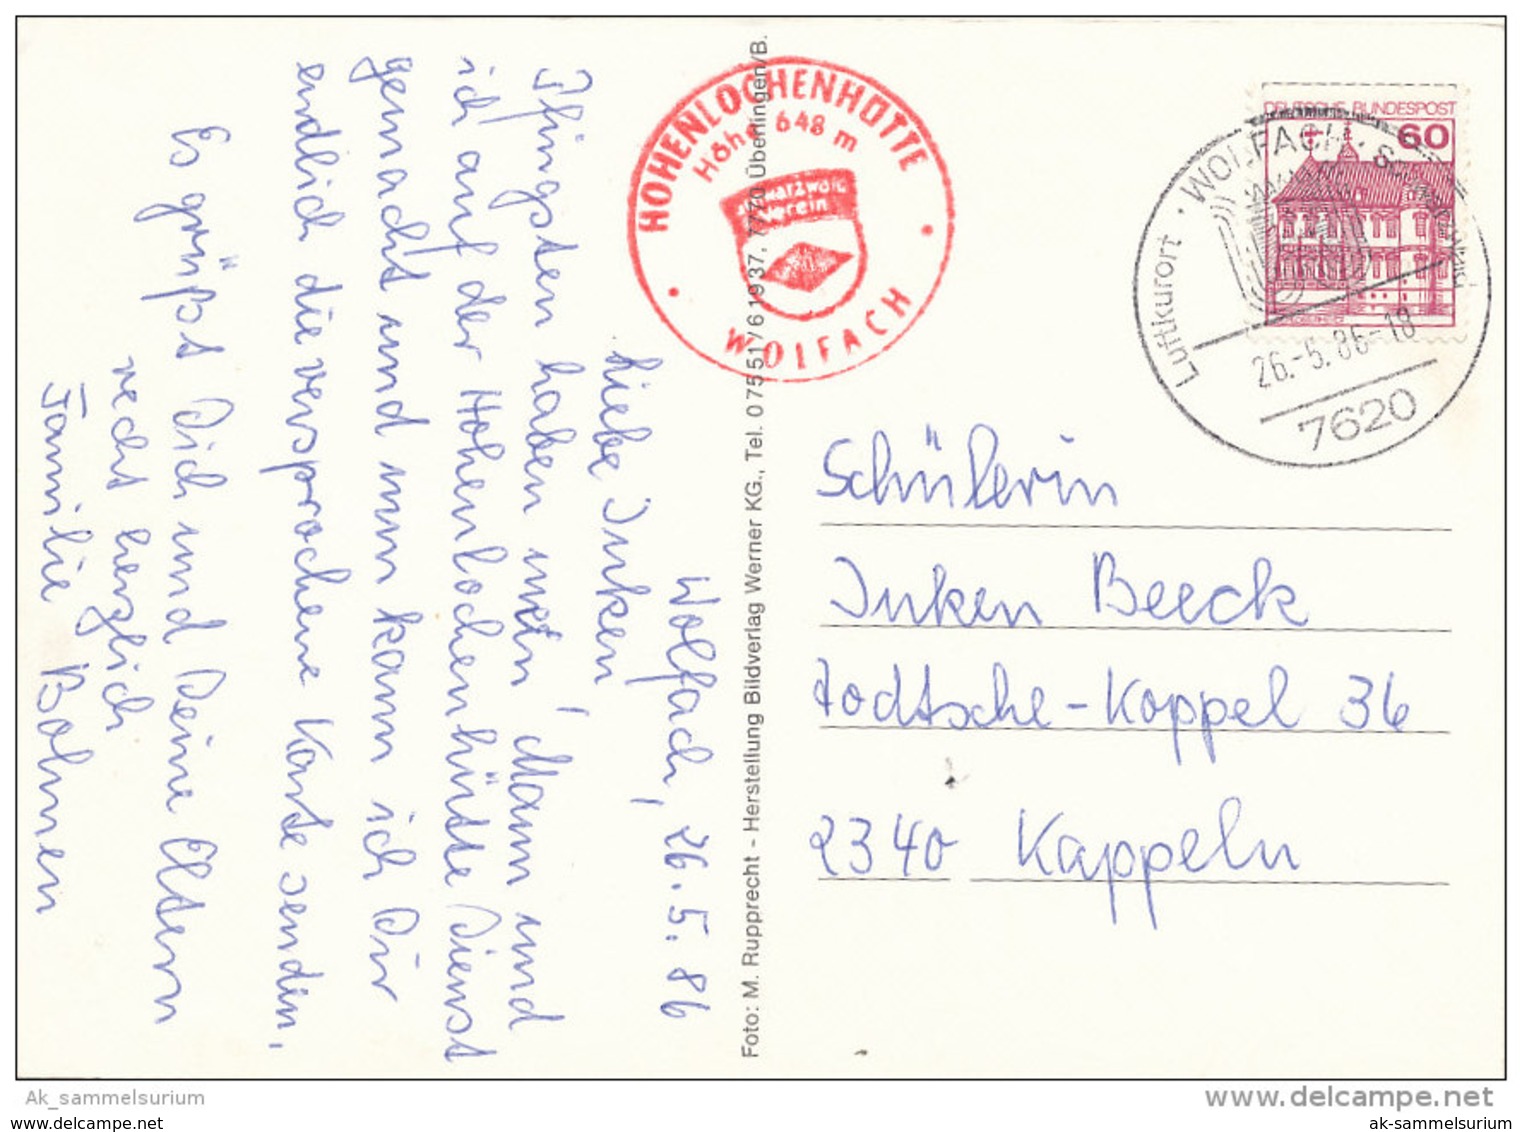 Wolfach, 26.5.86
Liebe Inken,
Pfingsten haben mein Mann und
ich auf der Hohenlochenhütte Dienst
gemacht und nun kann ich Dir
endlich die versprochene Karte senden.
Es grüßt Dich und Deine Eltern
recht herzlich
Familie Bohnen
HOHENLOCHENHÜTTE
Höhe 648 m
Schwarzwald
Verein
WOLFACH
Foto: M. Rupprecht - Herstellung Bildverlag Werner KG., Tel. 07551/61937, 7770 Überlingen/B.
DEUTSCHE BUNDESPOST
60
Luftkurort · WOLFACH ·
26.-5.86-18
7620
Schülerin
Inken Beeck
Todtsche-Koppel 36
2340 Kappeln
Ak_sammelsurium
www.delcampe.net
ak-sammelsurium
ak-sammelsurium